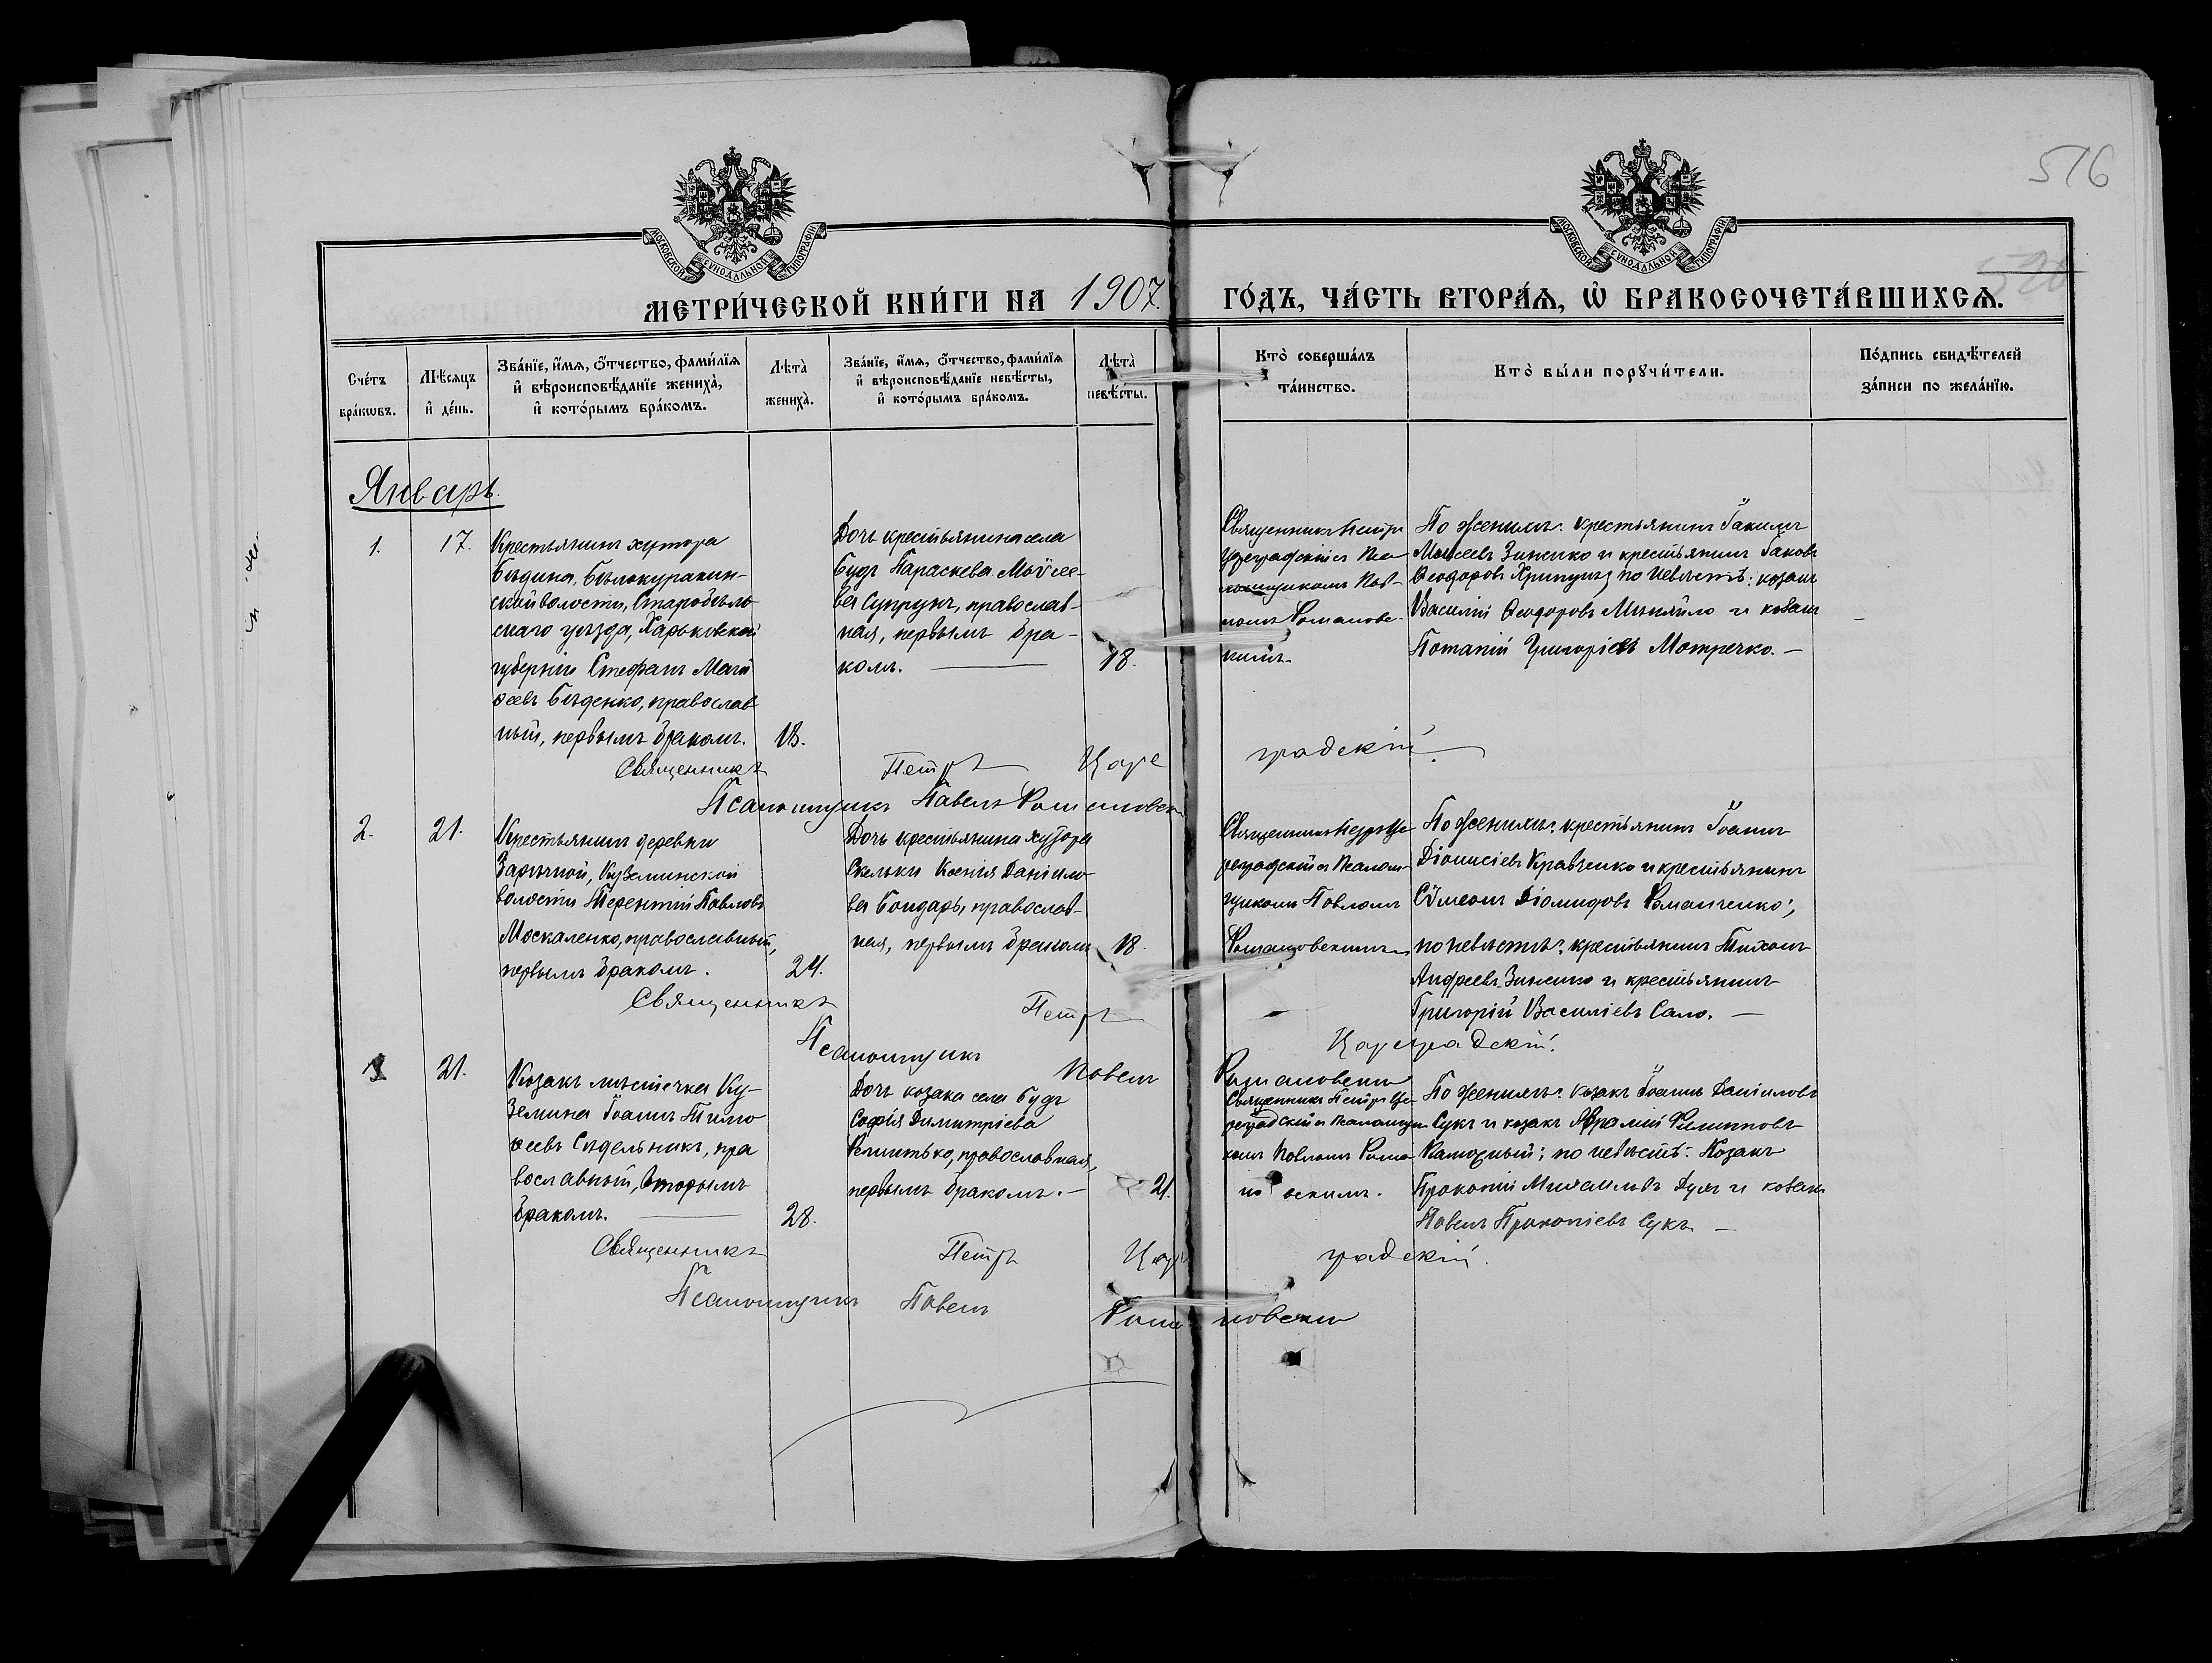 516
МОСКОВСКОЙ СУНОДАЛЬНОЙ ТИПОГРАФІИ
МОСКОВСКОЙ СУНОДАЛЬНОЙ ТИПОГРАФІИ
МЕТРИ́ЧЕСКОЙ КНИ́ГИ НА 1907 ГО́ДЪ, ЧА́СТЬ ВТОРА́Ѧ, Ѽ БРАКОСОЧЕТА́ВШИХСѦ.
Сче́тъ
бра́кѡвъ.
Мѣ́сяцъ
и҆ де́нь.
Зва́нїе, и҆́мѧ, ѻ҆́тчество, фами́лїѧ
и҆ вѣроисповѣ́данїе жениха̀,
и҆ кото́рымъ бра́комъ.
Лѣта̀
жениха̀.
Зва́нїе, и҆́мѧ, ѻ҆́тчество, фами́лїѧ
и҆ вѣроисповѣ́данїе невѣ́сты,
и҆ кото́рымъ бра́комъ.
Лѣта̀
невѣ́сты.
Кто̀ соверша́лъ
та́инство.
Кто̀ бы́ли порꙋчи́тели.
По́дпись свидѣ́телей
за́писи по жела́нїю.
Январь.
1.
17.
Крестьянинъ хутора
Бѣдина, Бѣлокуракин-
ской волости, Старобѣль
скаго уѣзда, Харьковской
губерніи Стефанъ Мат
ѳеевъ Бѣденко, православ
ный, первымъ бракомъ.
18.
Дочь крестьянина села
Будъ Параскева Моѵсе-
ва Супрунъ, православ-
ная, первымъ бра-
комъ.
18.
Священникъ Петръ
Цареградскій и Пса-
ломщикомъ Пав-
ломъ Романов-
скимъ
По женихѣ: крестьянинъ Іакимъ
Моѵсеевъ Зиненко и крестьянинъ Іаковъ
Ѳеодоровъ Хрипунъ; по невѣстѣ: козакъ
Василій Ѳеодоровъ Миняйло и козакъ
Потапій Григоріевъ Мотречко. —
Священникъ Петръ Царе градскій
Псаломщикъ Павелъ Романовскі
2.
21.
Крестьянинъ деревни
Зарѣчной, Куземинской
волости Терентій Павловъ
Москаленко, православный,
первымъ бракомъ.
24.
Дочь крестьянина хутора
Скельки Ксенія Даніило-
ва Бондарь, православ-
ная, первымъ бракомъ
18.
Священникъ Петръ Ца
реградскій и Псалом-
щикомъ Павломъ
Романовскимъ
По женихѣ: крестьянинъ Іоаннъ
Діонисіевъ Кравченко и крестьянинъ
Сѵмеонъ Діомидовъ Романченко;
по невѣстѣ: крестьянинъ Тихонъ
Андреевъ Зиненко и крестьянинъ
Григорій Василіевъ Сало. —
Священникъ Петръ Цареградскій.
Псаломщикъ Павелъ Романовскі
3
21.
Козакъ мѣстечка Ку-
земина Іоаннъ Тимо
ѳеевъ Сѣдельникъ, пра
вославный, вторымъ
бракомъ.
28.
Дочь козака села Будъ
Софія Димитріева
православная,
первымъ бракомъ. —
21.
Священникъ Петръ Ца-
реградскій и Псаломщи
комъ Павломъ Рома
но вскимъ.
По женихѣ: козакъ Іоаннъ Даніиловъ
Сукъ и козакъ Авраамій Филипповъ
по невѣстѣ: Козакъ
Прокопій Михаиловъ и козакъ
Павелъ Прокопіевъ Сукъ —
Священникъ Петръ Царе градскій.
Псаломщикъ Павелъ Рома новскі